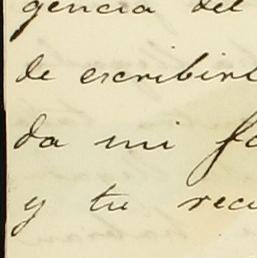 gencia del
de escribirl
da mi fa
y tu recu